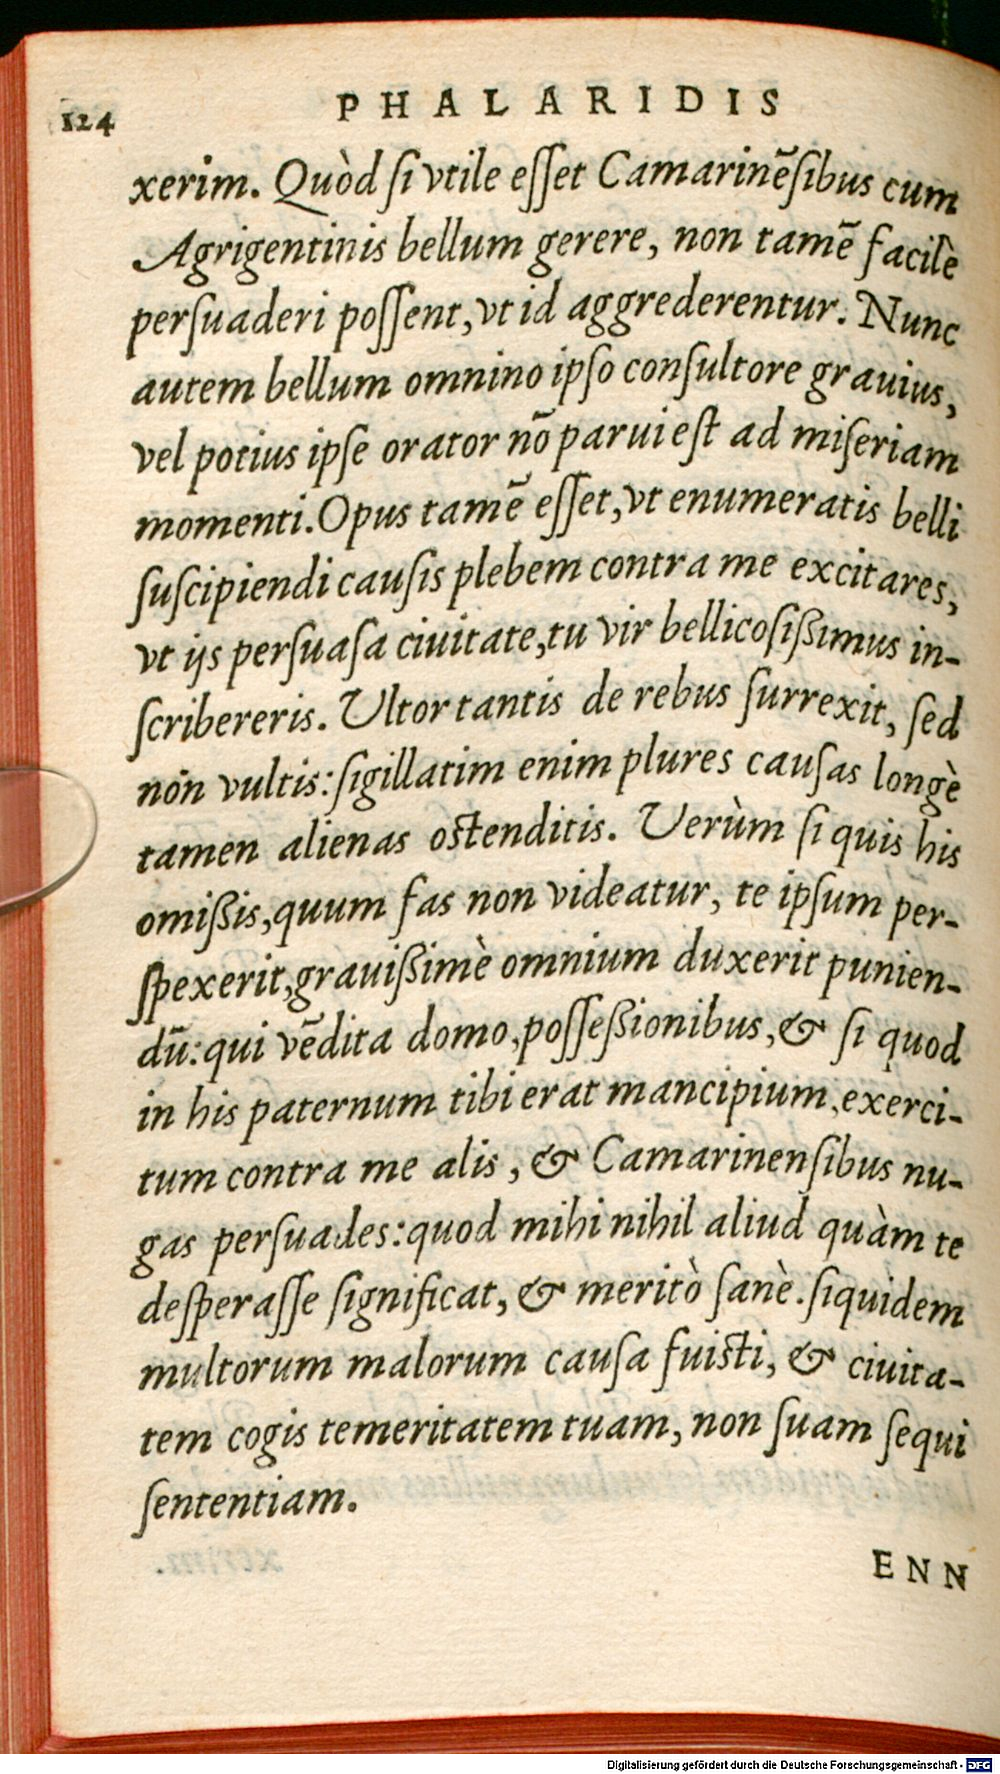 124 PHALARIDIS
xerim. Quòd ſi vtile eſſet Camarinēſibus cum
Agrigentinis bellum gerere, non tamē facilè
perſuaderi poſſent, vt id aggrederentur. Nunc
autem bellum omnino ipſo conſultore grauius,
vel potius ipſe orator nō parui eſt ad miſeriam
momenti. Opus tamē eſſet, vt enumeratis belli
ſuſcipiendi cauſis plebem contra me excitares,
vt ijs perſuaſa ciuitate, tu vir bellicoſißimus in-
ſcribereris. Vltor tantis de rebus ſurrexit, ſed
non vultis: ſigillatim enim plures cauſas longè
tamen alienas oſtenditis. Verùm ſi quis his
omißis, quum fas non videatur, te ipſum per-
ſpexerit, grauißimè omnium duxerit punien-
dū: qui vēdita domo, poſſeßionibus, & ſi quod
in his paternum tibi erat mancipium, exerci-
tum contra me alis, & Camarinenſibus nu-
gas perſuades: quod mihi nihil aliud quàm te
deſperaſſe ſignificat, & meritò ſanè. ſiquidem
multorum malorum cauſa fuiſti, & ciuita-
tem cogis temeritatem tuam, non ſuam ſequi
ſententiam.
ENN
Digitalisierung gefördert durch die Deutsche Forschungsgemeinschaft - DFG